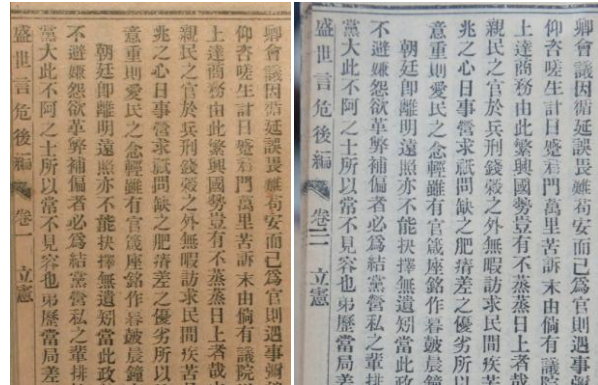 卿會議因循延誤畏難苟安而己爲官則遇事
仰咨嗟生計日蹙君門萬里苦訴末由倘有議院
上達商務由此繁興國勢豈有不蒸蒸日上者哉
親民之官於兵刑錢糓之外無暇訪求民間疾苦
兆之心日事營求祇問缺之肥瘠差之優劣所以
意重則愛民之念輕雖有官箴座銘作暮皷晨鐘
朝廷卽離明遠照亦不能抉擇無遺矧當此政
不避嫌怨欲革弊補偏者必爲結黨營私之輩排
黨大此不阿之士所以常不見容也弟歷當局差
盛世言危後編 卷一 立憲
卿會議因循延誤畏難苟安而己爲官則遇事
仰咨嗟生計日蹙君門萬里苦訴末由倘有議院
上達商務由此繁興國勢豈有不蒸蒸日上者哉
親民之官於兵刑錢糓之外無暇訪求民間疾苦
兆之心日事營求祇問缺之肥瘠差之優劣所以
意重則愛民之念輕雖有官箴座銘作暮皷晨鐘
朝廷卽離明遠照亦不能抉擇無遺矧當此政
不避嫌怨欲革弊補偏者必爲結黨營私之輩排
黨大此不阿之士所以常不見容也弟歷當局差
盛世言危後編 卷三 立憲